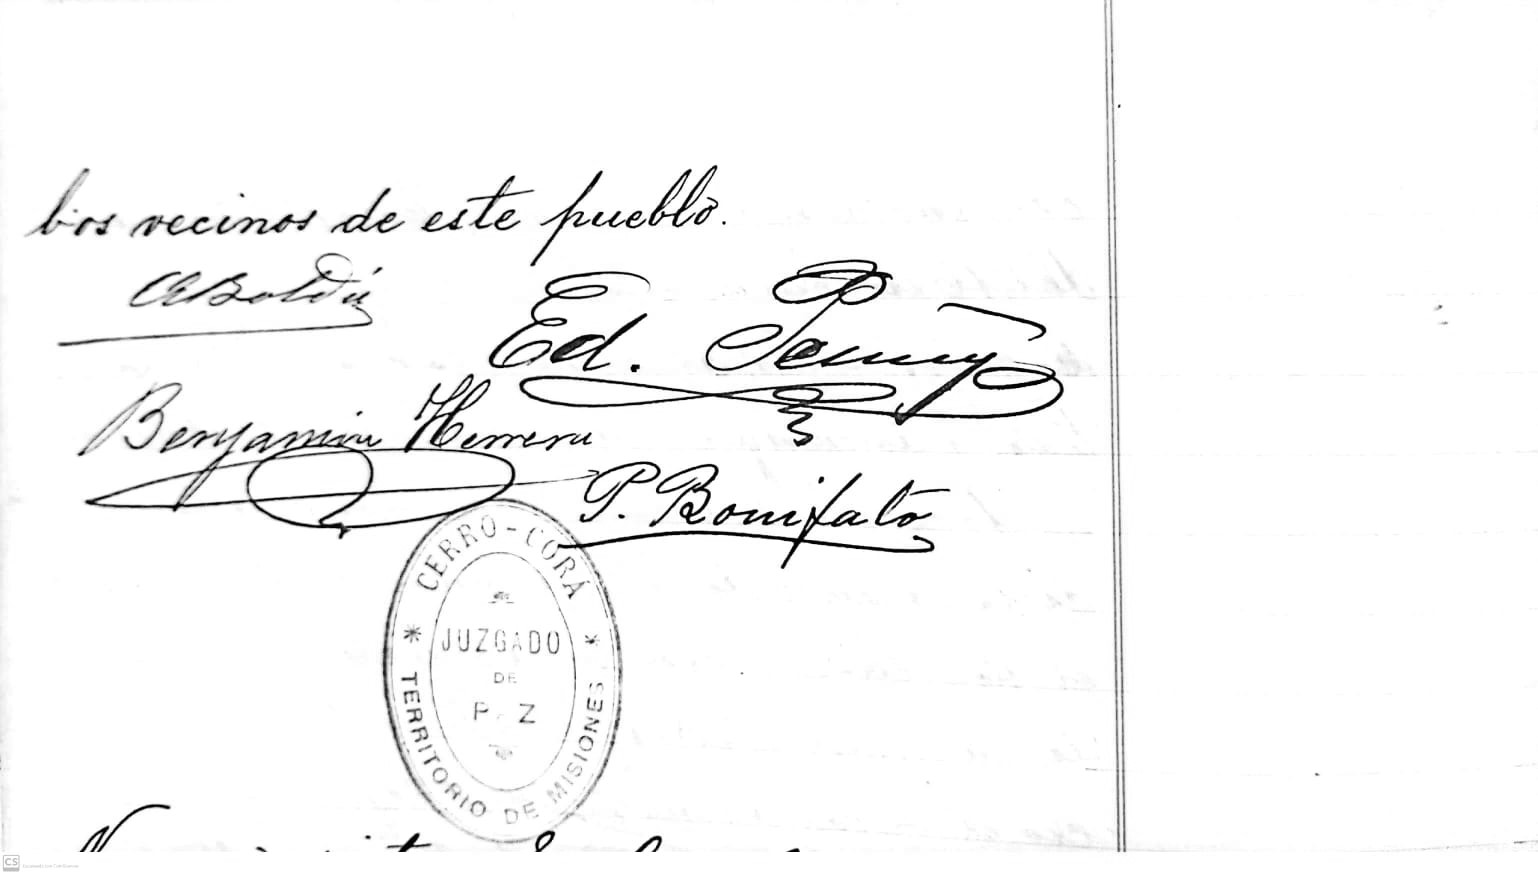 bos vecinos de este pueblo.
ABoldú
Ed.
Benjamin Herrera
P. Bonifato
CERRO-CORÁ
JUZGADO
DE
PAZ
TERRITORIO DE MISIONES
CS